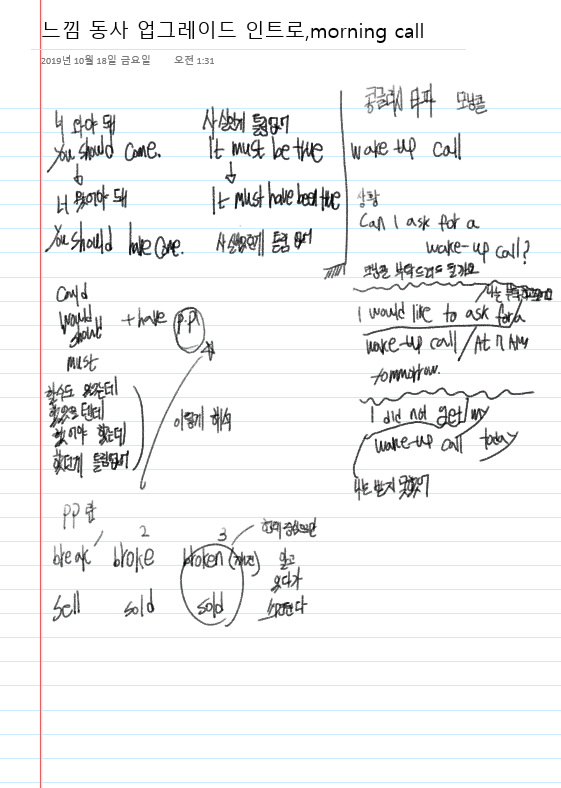 느낌 동사 업그레이드 인트로,morning call
2019년 10월 18일 금요일 오전 1:31
너 와야 돼
You should come.
너 왔어야 돼
You should have come.
사실임에 틀림없어
It must be true
It must have been true
사실이었던게 틀림 없어
Could
Would
should
must
+ have p.p
할수도 있었는데
했었을 텐데
했어야 했는데
했던게 틀림없어
이렇게 해석
PP란
2 3
break broke broken
sell sold sold
알고
있다가
콩글리시 타파 모닝콜
wake-up call
상황
Can I ask for a
wake-up call?
모닝콜 부탁드려도 될까요
I would like to ask for a
wake-up call / At 7 AM
tomorrow.
I did not get my
wake-up call today
나는 받지 못했어